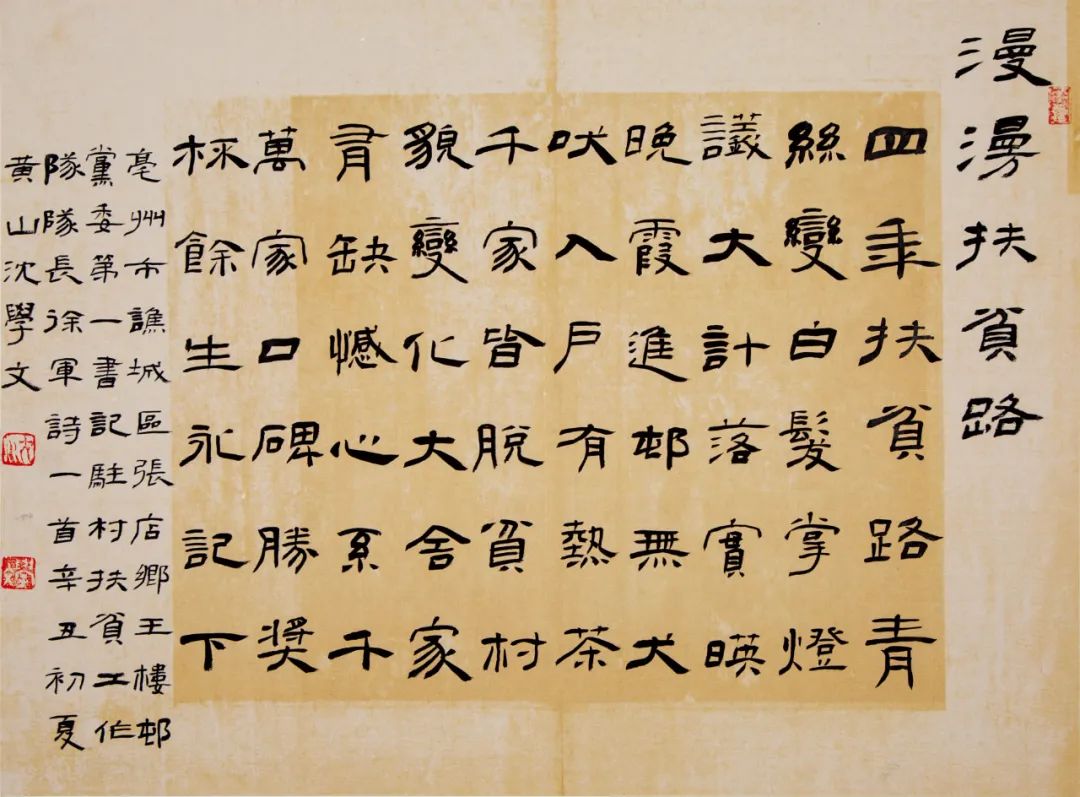 漫漫扶貧路
四年扶貧路青
絲變白髮掌燈
議大計落實暎
晚霞進邨無犬
吠入戶有熱茶
千家皆脫貧村
貌變化大舍家
有缺憾心系千
萬家口碑勝獎
杯餘生永記下
亳州市譙城區張店鄉王樓邨
黨委第一書記駐村扶貧工作
隊隊長徐軍詩一首辛丑初夏
黄山沈學文